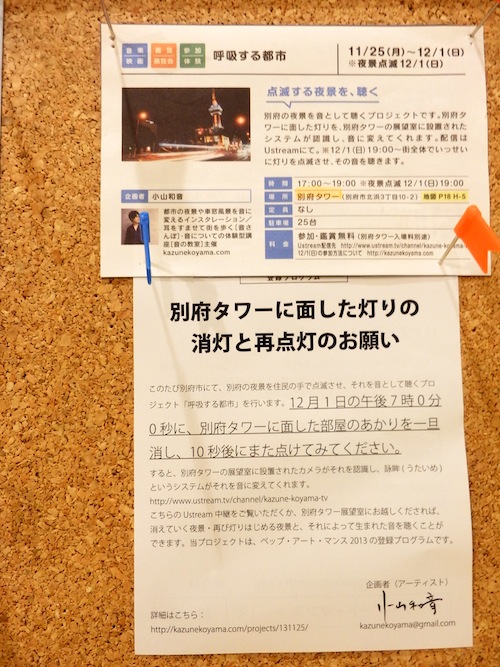 音楽
映画
展覧会
参加
体験
呼吸する都市
11/25（月）〜12/1（日）
※夜景点滅12/1（日）
点滅する夜景を、聴く
別府の夜景を音として聴くプロジェクトです。別府タ
ワーに面した灯りを、別府タワーの展望室に設置された
システムが認識し、音に変えてくれます。配信は
Ustreamにて。※12/1（日）19:00〜街全体でいっせい
に灯りを点滅させ、その音を聴きます。
企画者 小山和音
都市の夜景や車窓風景を音に
変えるインスタレーション／
耳をすませて街を歩く［音さ
んぽ］・音についての体験型講
座［音の教室］主催
kazunekoyama.com
時 間 17:00〜19:00 ※夜景点滅12/1（日）19:00
場 所 別府タワー（別府市北浜3丁目10-2） 地図 P18 H-5
定 員 なし
駐車場 25台
料 金 参加・鑑賞無料（別府タワー入場料別途）
Ustream配信先 http://www.ustream.tv/channel/kazune-koyama-tv
12/1（日）の参加方法について http://kazunekoyama.com
登録プログラム
別府タワーに面した灯りの
消灯と再点灯のお願い
このたび別府市にて、別府の夜景を住民の手で点滅させ、それを音として聴くプロ
ジェクト「呼吸する都市」を行います。12月1日の午後7時0分
0秒に、別府タワーに面した部屋のあかりを一旦
消し、10秒後にまた点けてみてください。
すると、別府タワーの展望室に設置されたカメラがそれを認識し、詠眸（うためい）
というシステムがそれを音に変えてくれます。
http://www.ustream.tv/channel/kazune-koyama-tv
こちらの Ustream 中継をご覧いただくか、別府タワー展望室にお越しくだされば、
消えていく夜景・再び灯りはじめる夜景と、それによって生まれた音を聴くことが
できます。当プロジェクトは、ベップ・アート・マンス 2013 の登録プログラムです。
企画者（アーティスト）
小山和音
詳細はこちら：
http://kazunekoyama.com/projects/131125/
kazunekoyama@gmail.com